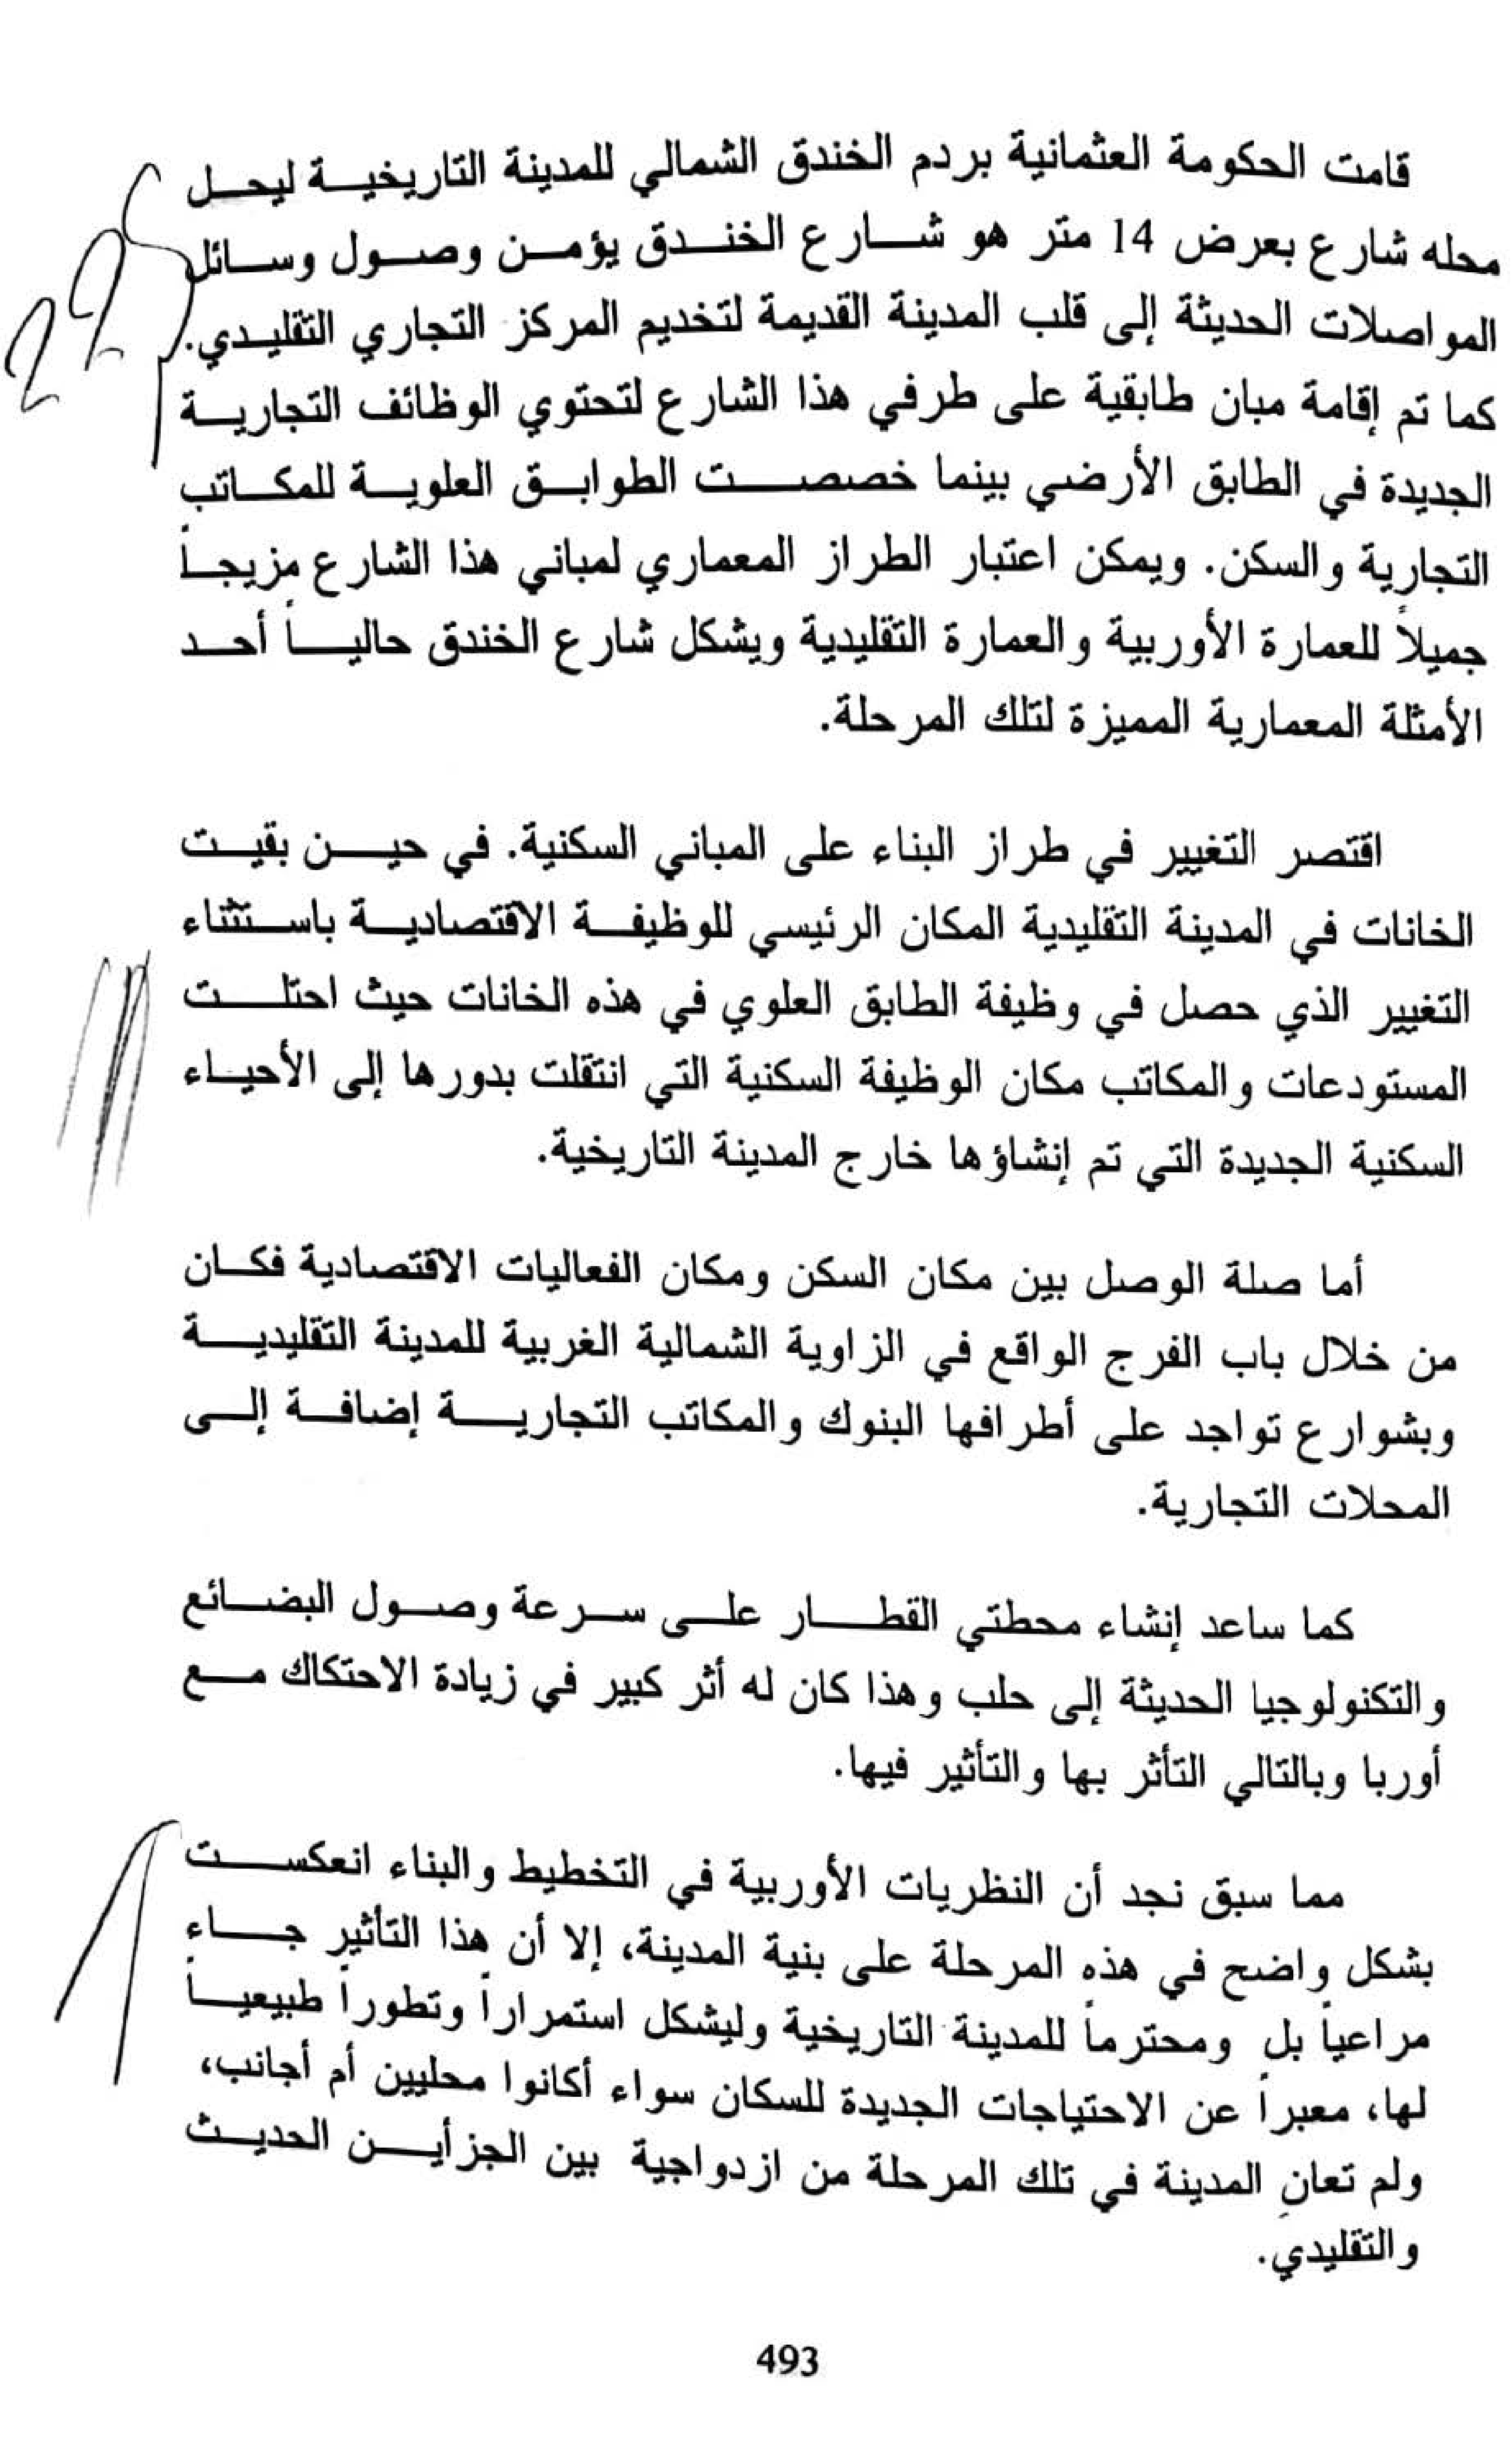 قامت الحكومة العثمانية بردم الخندق الشمالي للمدينة التاريخية ليحل
محله شارع بعرض 14 متر هو شارع الخندق يؤمن وصول وسائل
المواصلات الحديثة إلى قلب المدينة القديمة لتخديم المركز التجاري التقليدي.
كما تم إقامة مبان طابقية على طرفي هذا الشارع لتحتوي الوظائف التجارية
الجديدة في الطابق الأرضي بينما خصصت الطوابق العلوية للمكاتب
التجارية والسكن. ويمكن اعتبار الطراز المعماري لمباني هذا الشارع مزيجاً
جميلاً للعمارة الأوربية والعمارة التقليدية ويشكل شارع الخندق حالياً أحد
الأمثلة المعمارية المميزة لتلك المرحلة.
اقتصر التغيير في طراز البناء على المباني السكنية. في حين بقيت
الخانات في المدينة التقليدية المكان الرئيسي للوظيفة الاقتصادية باستثناء
التغيير الذي حصل في وظيفة الطابق العلوي في هذه الخانات حيث احتلت
المستودعات والمكاتب مكان الوظيفة السكنية التي انتقلت بدورها إلى الأحياء
السكنية الجديدة التي تم إنشاؤها خارج المدينة التاريخية.
أما صلة الوصل بين مكان السكن ومكان الفعاليات الاقتصادية فكان
من خلال باب الفرج الواقع في الزاوية الشمالية الغربية للمدينة التقليدية
وبشوارع تواجد على أطرافها البنوك والمكاتب التجارية إضافة إلى
المحلات التجارية.
كما ساعد إنشاء محطتي القطار على سرعة وصول البضائع
والتكنولوجيا الحديثة إلى حلب وهذا كان له أثر كبير في زيادة الاحتكاك مع
أوربا وبالتالي التأثر بها والتأثير فيها.
مما سبق نجد أن النظريات الأوربية في التخطيط والبناء انعكست
بشكل واضح في هذه المرحلة على بنية المدينة، إلا أن هذا التأثير جاء
مراعياً بل ومحترماً للمدينة التاريخية وليشكل استمراراً وتطوراً طبيعياً
لها، معبراً عن الاحتياجات الجديدة للسكان سواء أكانوا محليين أم أجانب،
ولم تعانِ المدينة في تلك المرحلة من ازدواجية بين الجزأين الحديث
والتقليدي.
493